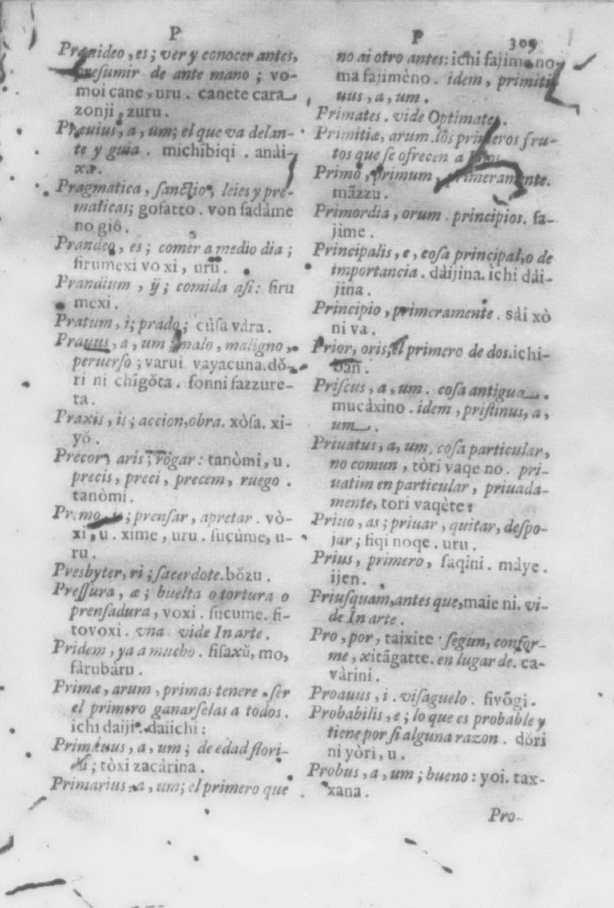 P
P 309
Præuideo, es; ver y conocer antes,
presumir de ante mano; vo-
moi cane, uru. canete cara
zonji, zuru.
Præuius, a, um; el que va delan-
te y guia. michibiqi. anài-
xæ.
Pragmatica, sanctio, leies y pre-
maticas; gofatto. von sadàme
no giô.
Prandeo, es; comer a medio dia;
firumexi vo xi, uru.
Prandium, ij; comida asi: firu
mexi.
Pratum, i; prado; cùsa vàra.
Prauus, a, um; malo, maligno,
peruerso; varui vayacuna. dǒ-
ri ni chĩgôta. fonni fazzure-
ta.
Praxis, is; accion, obra. xòsa. xi-
yô.
Precor, aris; rogar: tanòmi, u.
precis, preci, precem, ruego.
tanòmi.
Premo, is; prensar, apretar. vò-
xi, u. xime, uru. sucùme, u-
ru.
Presbyter, ri; sacerdote. bǒzu.
Pressura, æ; buelta o tortura o
prensadura, voxi. sucume. fi-
tovoxi. vna vide In arte.
Pridem, ya a mucho. fisaxŭ, mo,
fàrubàru.
Primæ, arum, primas tenere. ser
el primero ganarselas a todos.
ichi daiji. daiichi:
Primæuus, a, um; de edad flori-
da; tòxi zacàrina.
Primarius, a, um; el primero que
no ai otro antes: ichi fajime no
ma fajimèno. idem, primiti-
uus, a, um.
Primates. vide Optimates.
Primitiæ, arum. los primeros fru-
tos que se ofrecen a Dios.
Primo, primum, primeramente.
mãzzu.
Primordia, orum. principios. fa-
jime.
Principalis, e, cosa principal, o de
importancia. dàijina. ichi dài-
jina.
Principio, primeramente. sài xò
ni va.
Prior, oris, el primero de dos. ichi-
ban.
Priscus, a, um. cosa antigua.
mucàxino. idem, pristinus, a,
um.
Priuatus, a, um, cosa particular,
no comun, tòri vaqe no. pri-
uatim en particular, priuada-
mente, tori vaqète:
Priuo, as; priuar, quitar, despo-
jar; fiqi noqe. uru.
Prius, primero, saqini. màye.
ijen.
Priusquam, antes que, maie ni. vi-
de In arte.
Pro, por, taixite. segun, confor-
me, xitãgatte. en lugar de. ca-
vàrini.
Proauus, i. visaguelo. fivôgi.
Probabilis, e; lo que es probable y
tiene por si alguna razon. dǒri
ni yòri, u.
Probus, a, um; bueno: yoi. tax-
xana.
Pro-